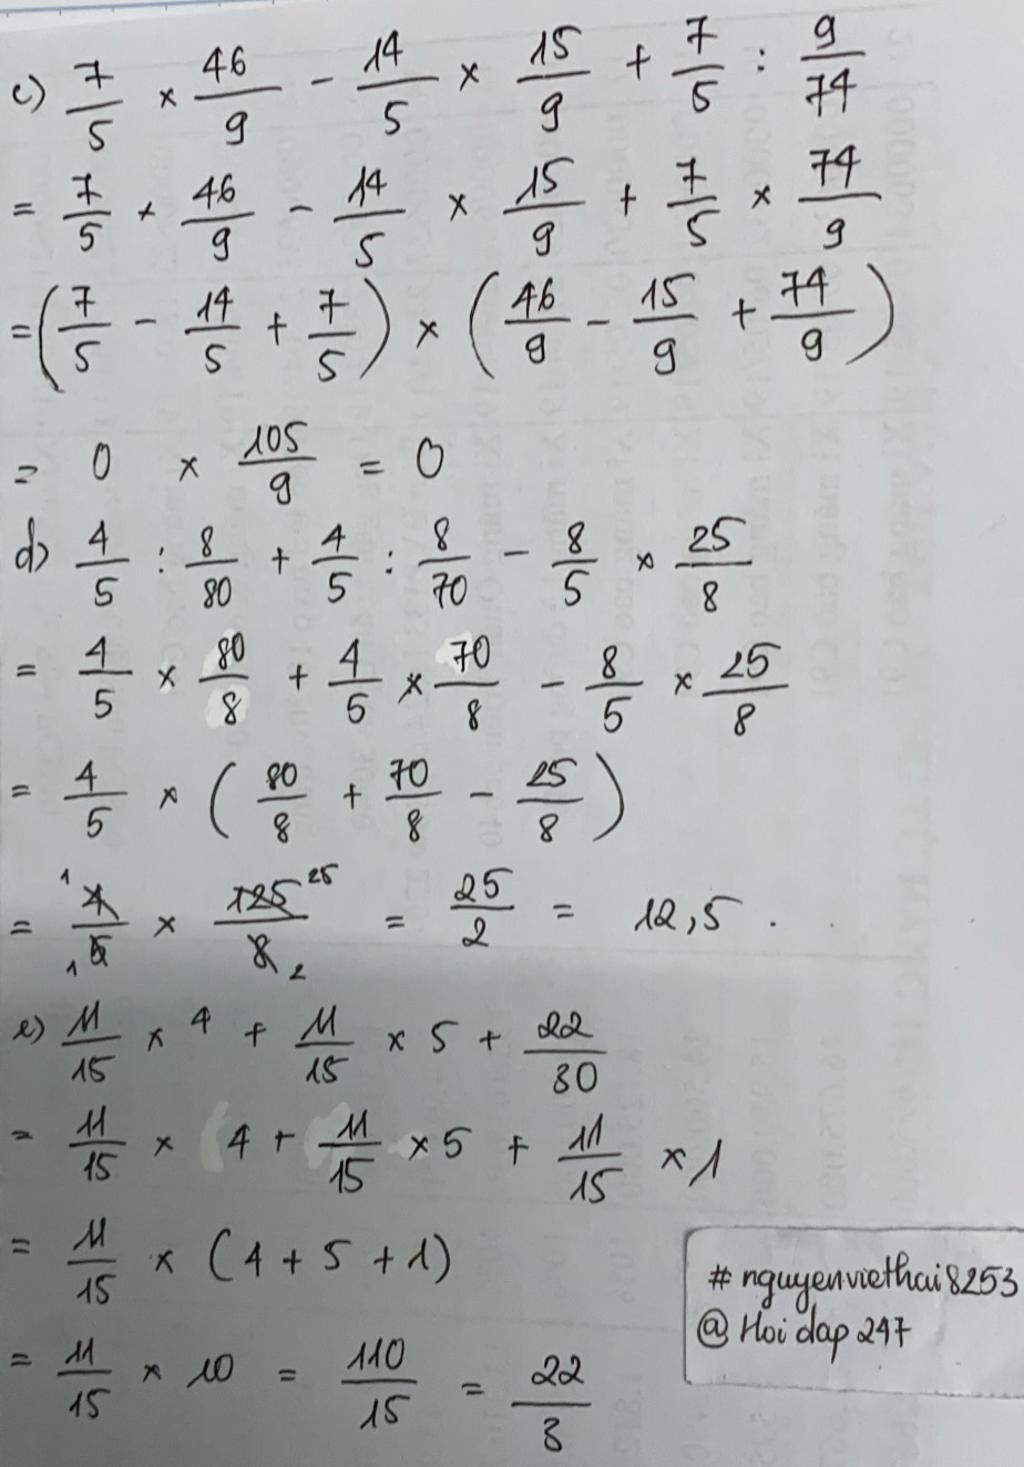 c) 7/5 × 46/9 - 14/5 × 15/9 + 7/5 : 9/74
= 7/5 × 46/9 - 14/5 × 15/9 + 7/5 × 74/9
= (7/5 - 14/5 + 7/5) × (46/9 - 15/9 + 74/9)
= 0 × 105/9 = 0
d) 4/5 : 8/80 + 4/5 : 8/70 - 8/5 × 25/8
= 4/5 × 80/8 + 4/5 × 70/8 - 8/5 × 25/8
= 4/5 × (80/8 + 70/8 - 25/8)
= 1 4/5 1 × 125 25/8 2 = 25/2 = 12,5.
e) 11/15 × 4 + 11/15 × 5 + 22/30
= 11/15 × 4 + 11/15 × 5 + 11/15 × 1
= 11/15 × (4 + 5 + 1)
= 11/15 × 10 = 110/15 = 22/3
# nguyenviethai8253
@ Hoi dap 247